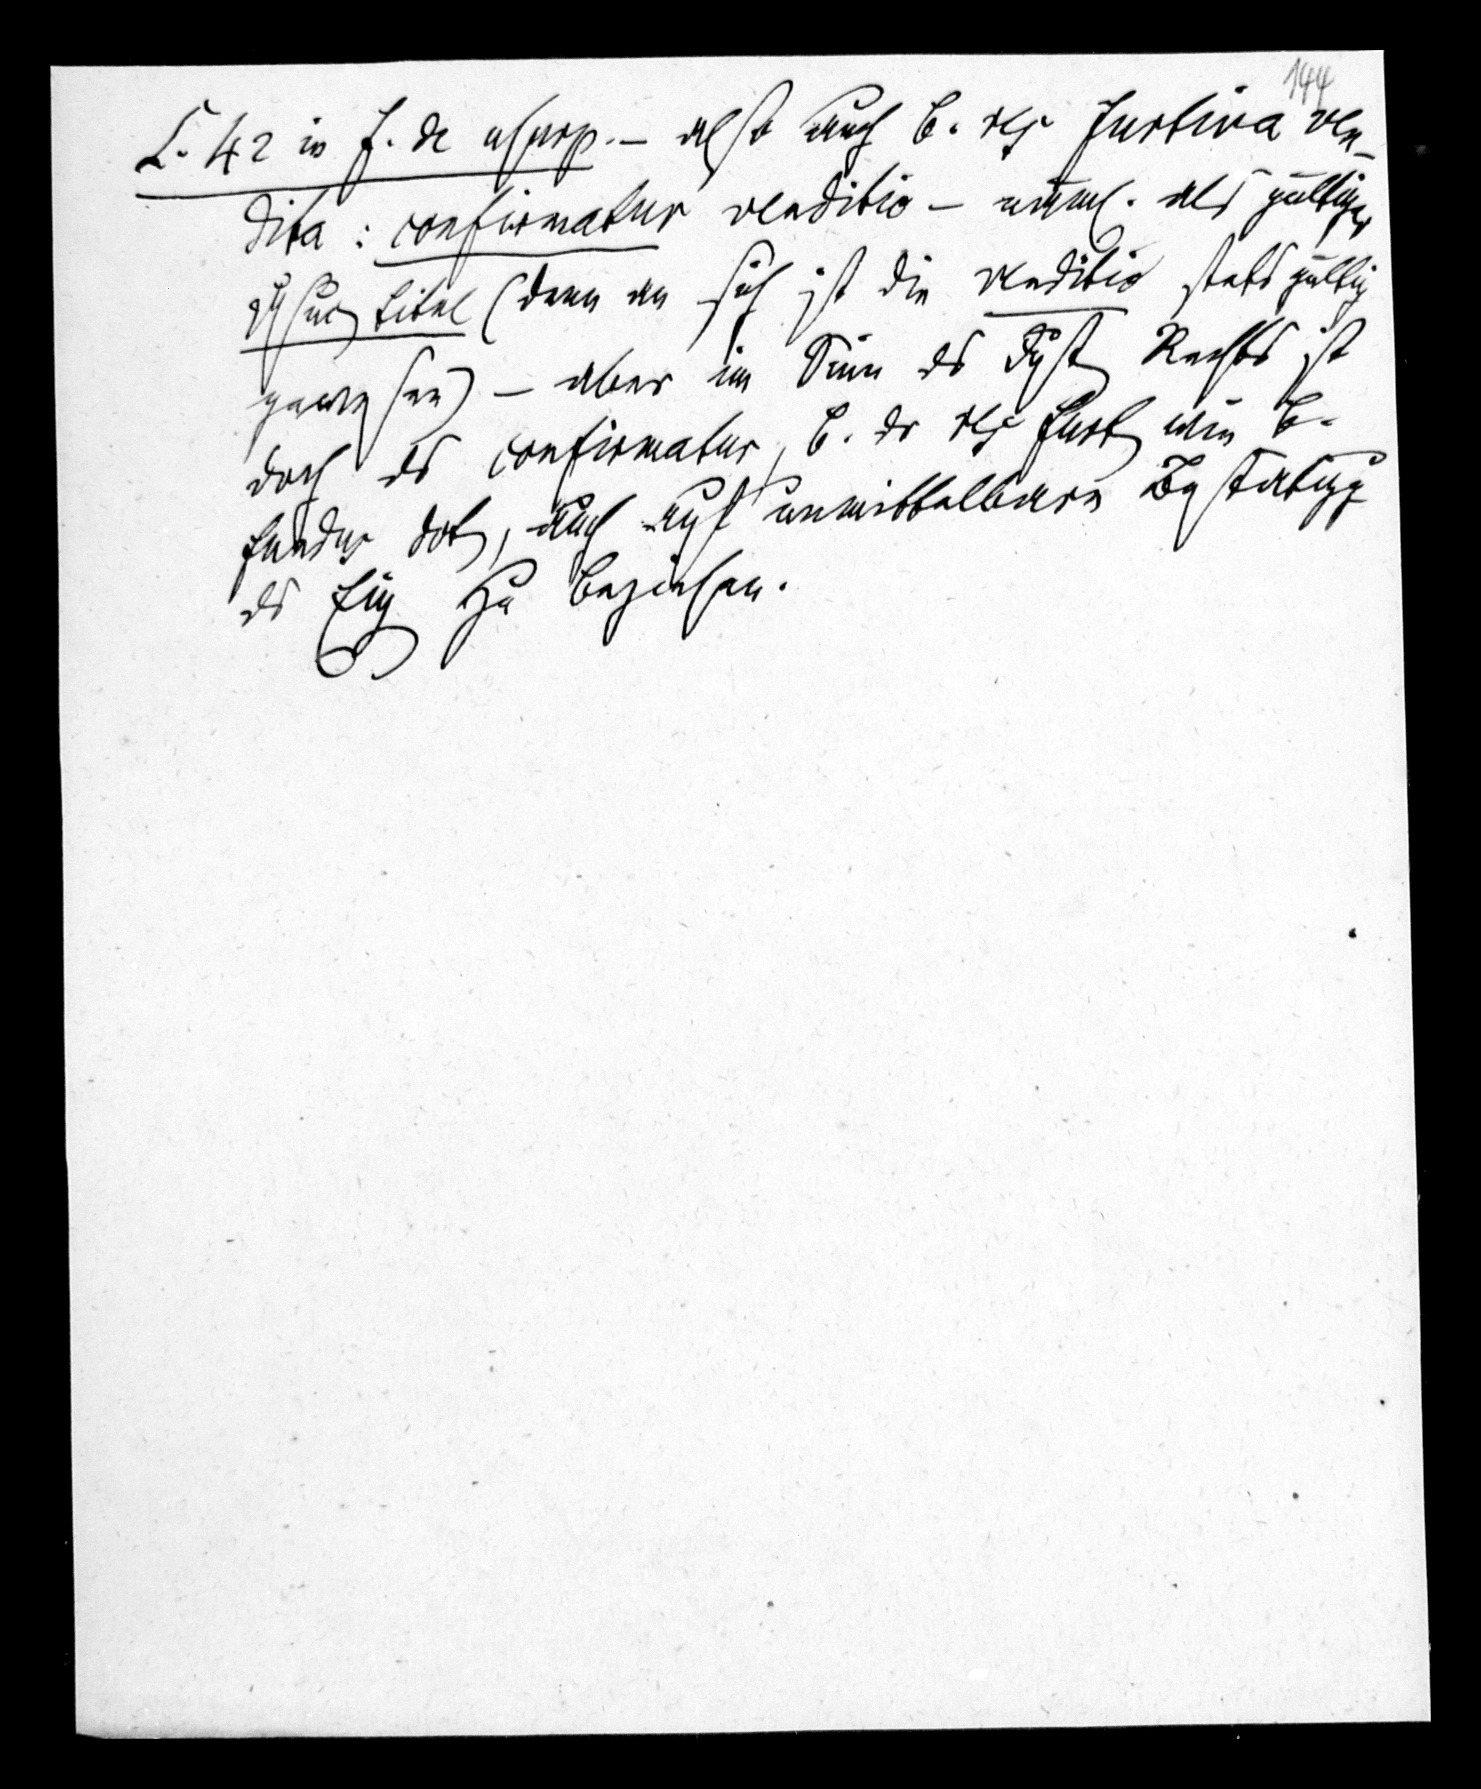 144
L. 42 in f. de usurp. – also auch b. res furtiva ven-
dita : confirmatur venditio – näml. als gültiger
Usuc titel (denn an sich ist die venditio stets gültig
gewesen) – aber im Sinn des Just Rechts ist
doch das confirmatur, b. der res furt wie b.
fundus dot, auch auf unmittelbare Bestätigg
des Eig zu beziehen.